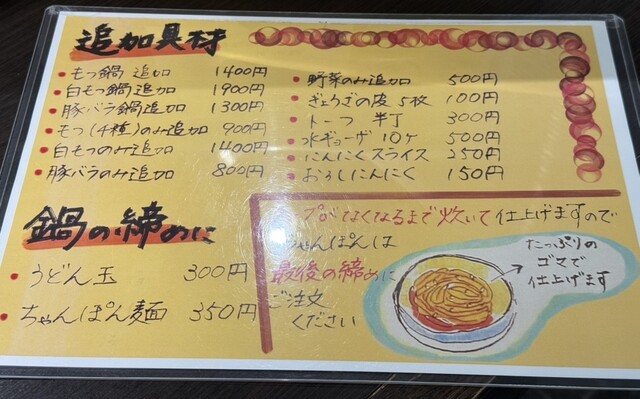 追加具材
もつ鍋 追加 1400円
白もつ鍋追加 1900円
豚バラ鍋追加 1300円
もつ(4種)のみ追加 900円
白もつのみ追加 1400円
豚バラのみ追加 800円
野菜のみ追加 500円
ぎょうざの皮 5枚 100円
トーフ 半丁 300円
水ギョーザ 10ケ 500円
にんにくスライス 250円
おろしにんにく 150円
鍋の締めに
うどん玉 300円
ちゃんぽん麺 350円
プがなくなるまで炊いて仕上げますので
ちゃんぽんは
最後の締めに
ご注文
ください
たっぷりの
ゴマで
仕上げます